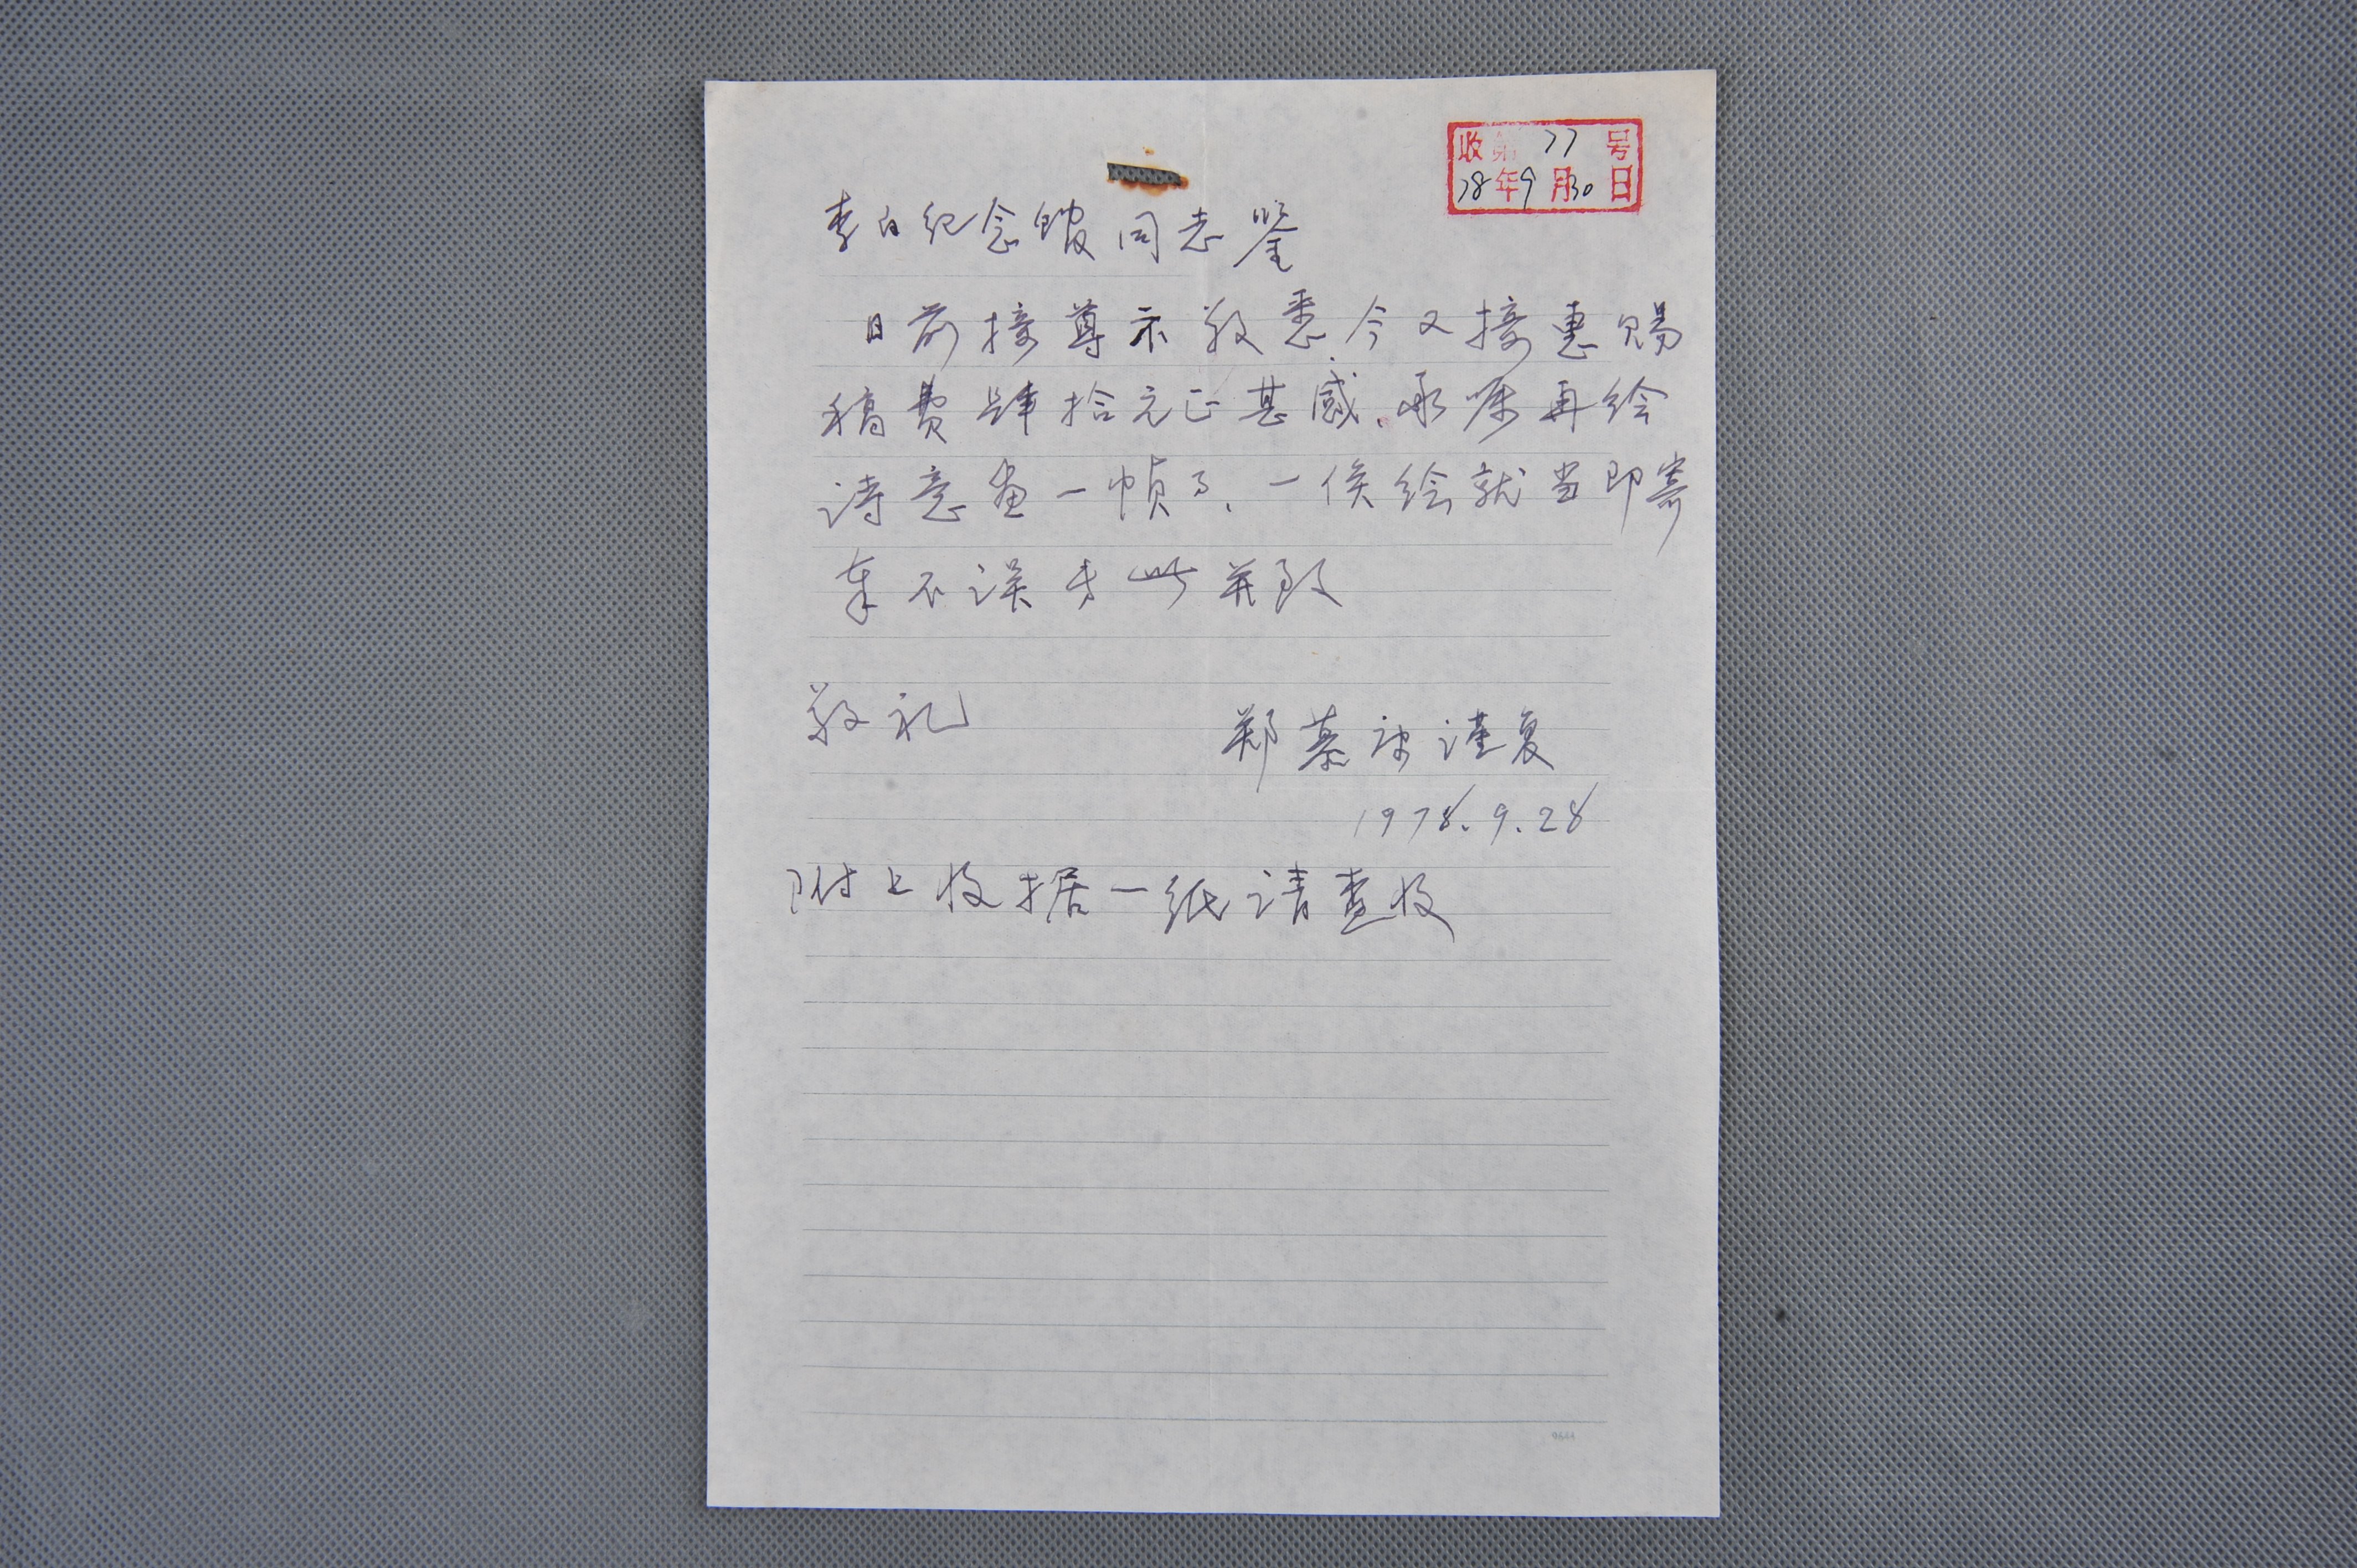 收第 77 号
78年9月30日
李白纪念馆同志鉴
日前接尊示敬悉.今又接惠赐
稿费肆拾元正甚感、承嘱再绘
诗意画一帧事、一俟绘就当即寄
奉不误专此并致
敬礼
郑慕康谨复
1978.9.28
附上收据一纸请查收